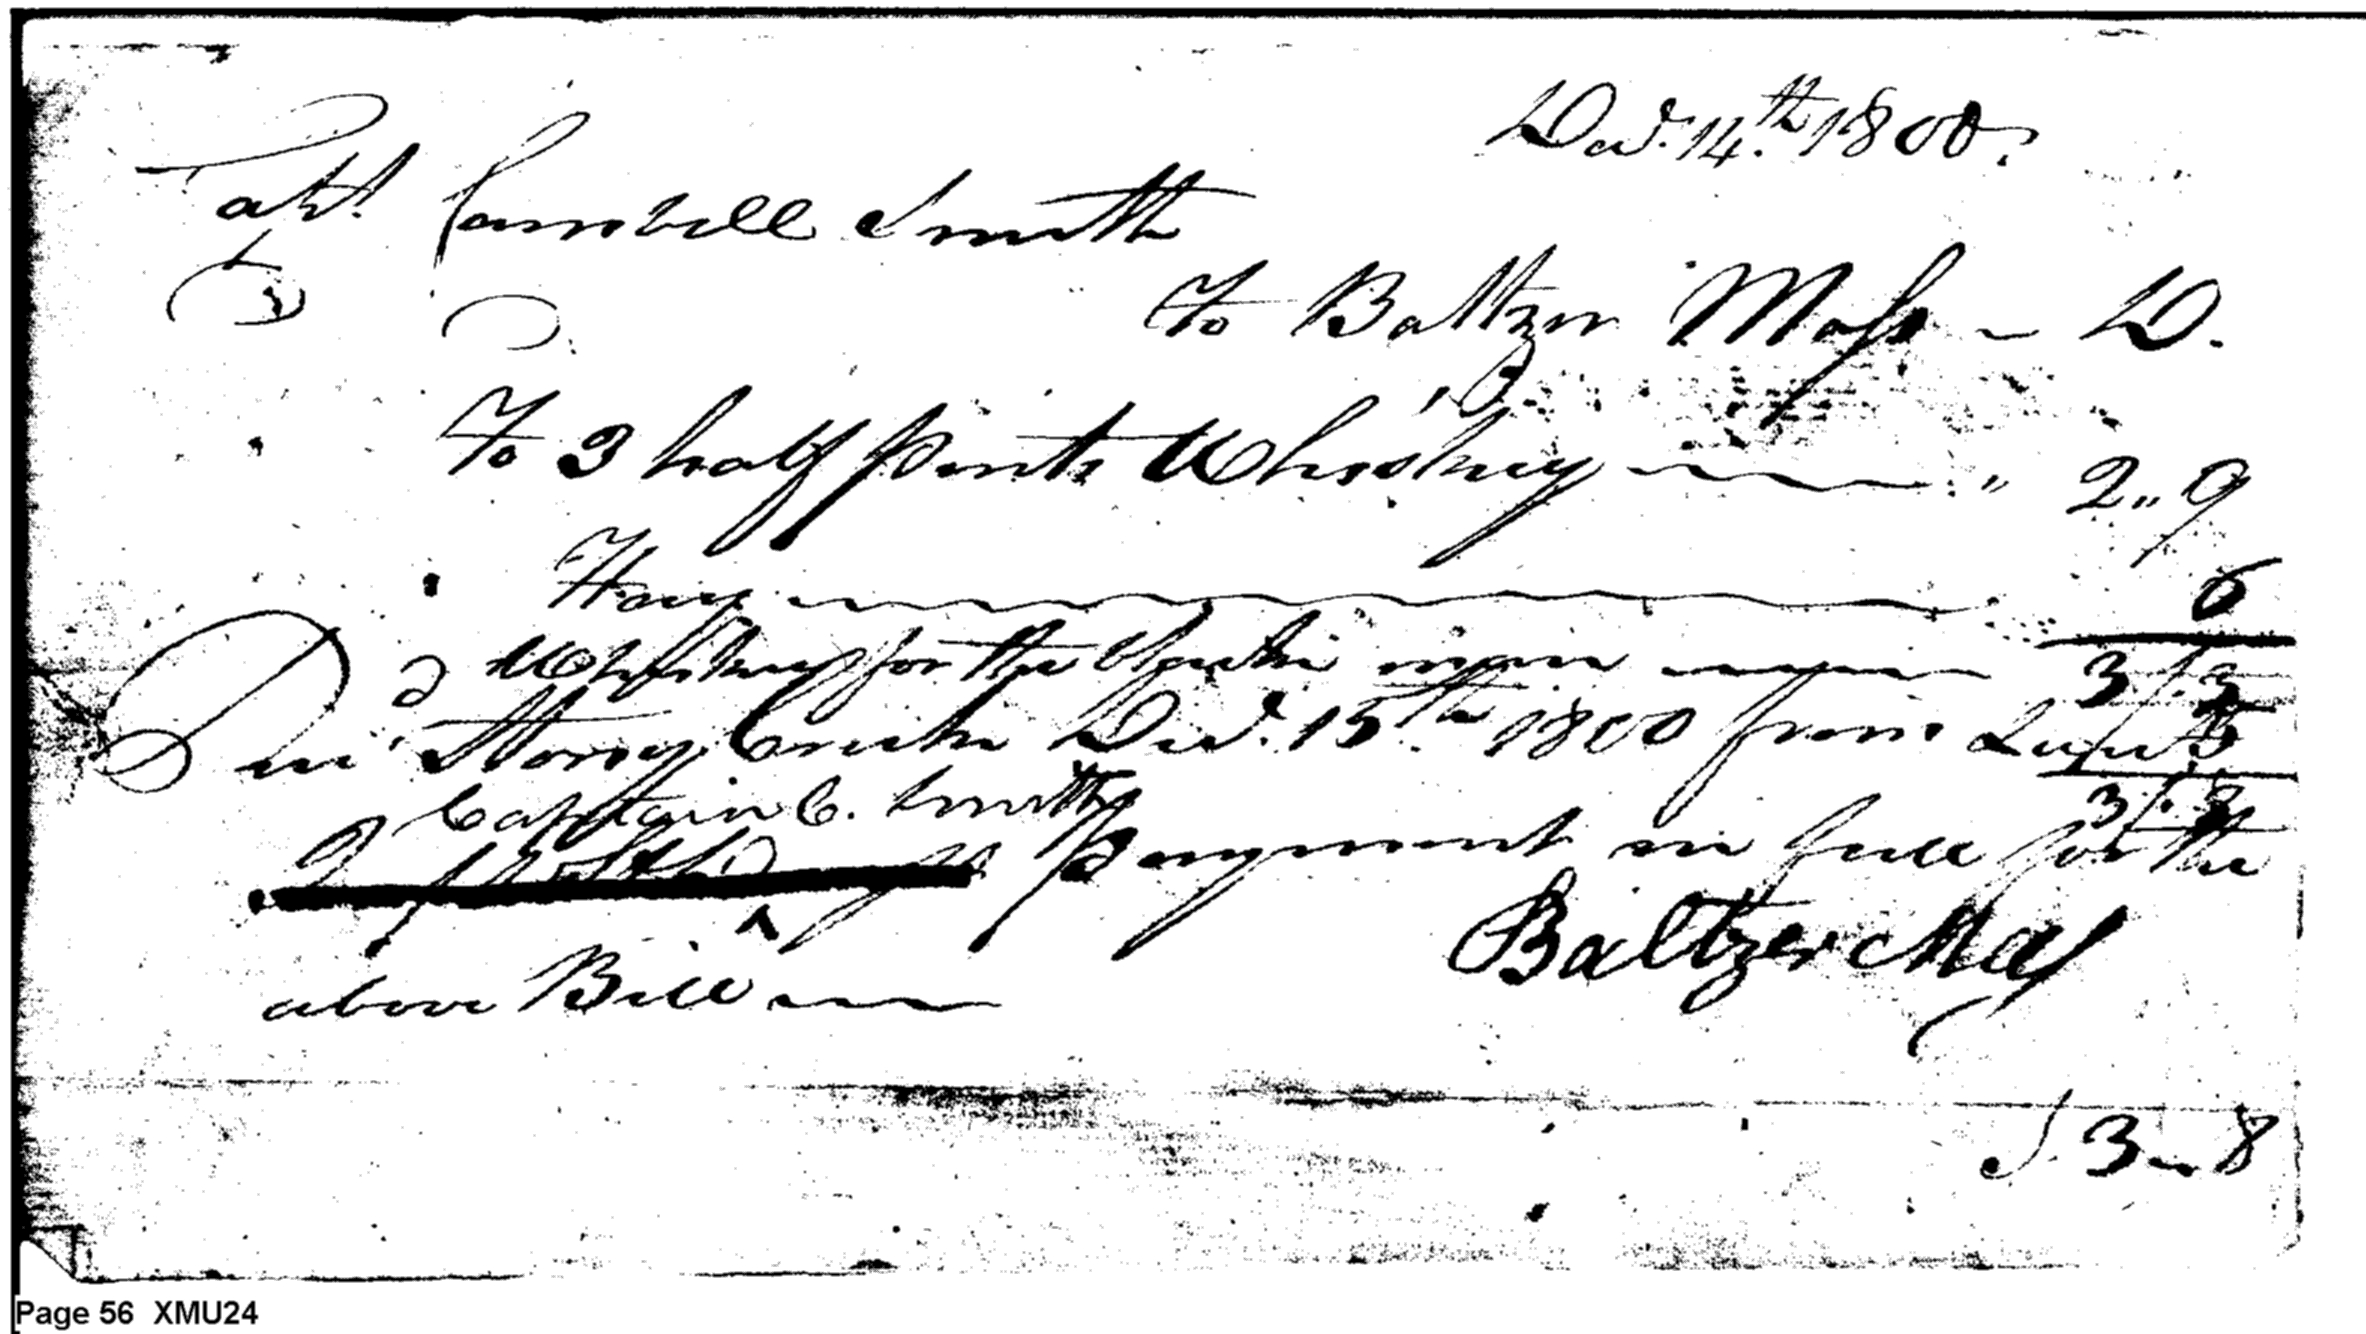 Decr. 14th 1800.
Capt. Cambell Smith
To Baltzer Mass - D.
To 3 half pints Whiskey " 2 " 9
Hay 6
3/.3
Whiskey for the black man 5
Stony Creek Decr. 15th 1800 from
Captain C. Smith
3/.8
payment in full for the
above Bill
Baltzer Mas
S. 3 - 8
Page 56 XMU24